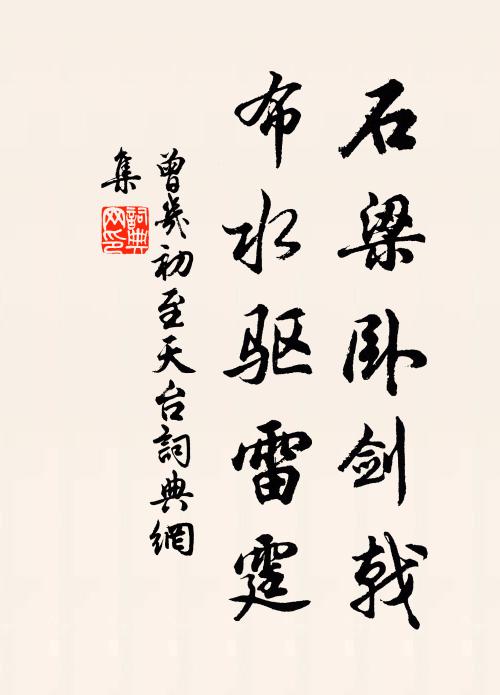 石梁卧剑戟
布水驱雷霆
曾幾初至天台詞典網
集
詞典网印